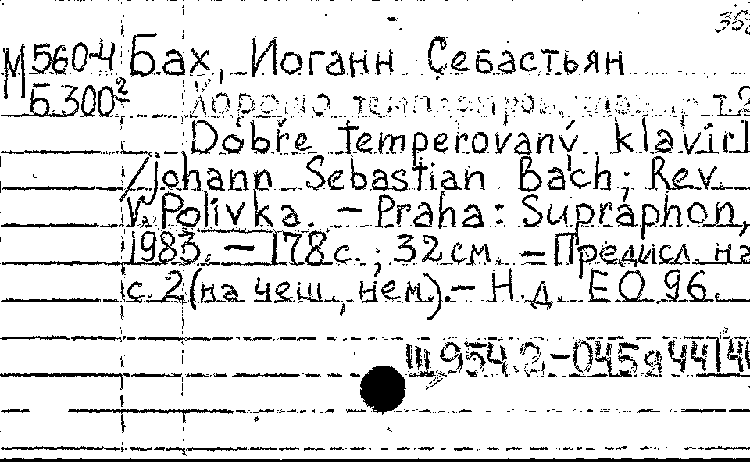 М 560-4 Бах, Иоганн Себастьян
Б.300²
Хорошо темпериров. клавир т.2
Dobře temperovaný klavír
/Johann Sebastian Bach; Rev.
V. Polívka. – Praha: Supraphon,
1983. – 178 с.; 32 см. – Предисл. на
с. 2 (на чеш., нем.). – Н.д. ЕО 96.
Щ 954.2-045я44